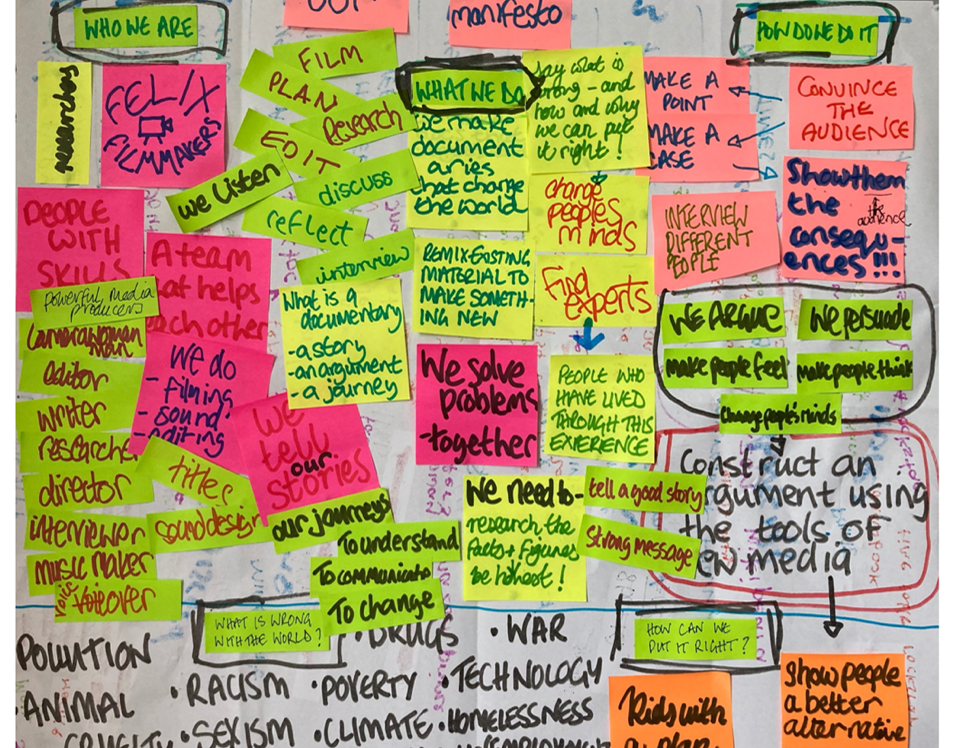 WHO WE ARE
manifesto
HOW DO WE DO IT
researchers
FELIX
FILMMAKERS
FILM
PLAN
Research
EDIT
we listen
discuss
reflect
interview
WHAT WE DO
we make
document
aries
that change
the world
say what is
wrong - and
how and why
we can put
it right!
MAKE A
POINT
MAKE A
CASE
CONVINCE
THE
AUDIENCE
PEOPLE
WITH
SKILLS
A team
that helps
each other
change
peoples
minds
INTERVIEW
DIFFERENT
PEOPLE
Show them
the
the audience
consequ-
ences!!!
powerful media
producers
camerawoman
man
editor
writer
researcher
director
interviewer
music maker
voice
voiceover
We do
- filming
- sound
- editing
titles
sound design
What is a
documentary
- a story
- an argument
- a journey
REMIX EXISTING
MATERIAL TO
MAKE SOMETH-
ING NEW
Find
experts
WE ARGUE
We persuade
make people feel
make people think
change people's minds
We
tell
our
stories
our journeys
To understand
To communicate
To change
We solve
problems
- together
PEOPLE WHO
HAVE LIVED
THROUGH THIS
EXIERENCE
We need to-
research the
facts + figures
be honest!
tell a good story
Strong message
Construct an
argument using
the tools of
new media
WHAT IS WRONG
WITH THE WORLD?
HOW CAN WE
PUT IT RIGHT?
POLLUTION
• DRUGS
• WAR
ANIMAL
CRUELTY
• RACISM
• POVERTY
• TECHNOLOGY
• SEXISM
• CLIMATE
• HOMELESSNESS
UNEMPLOYMENT
Kids with
a plan
show people
a better
alternative